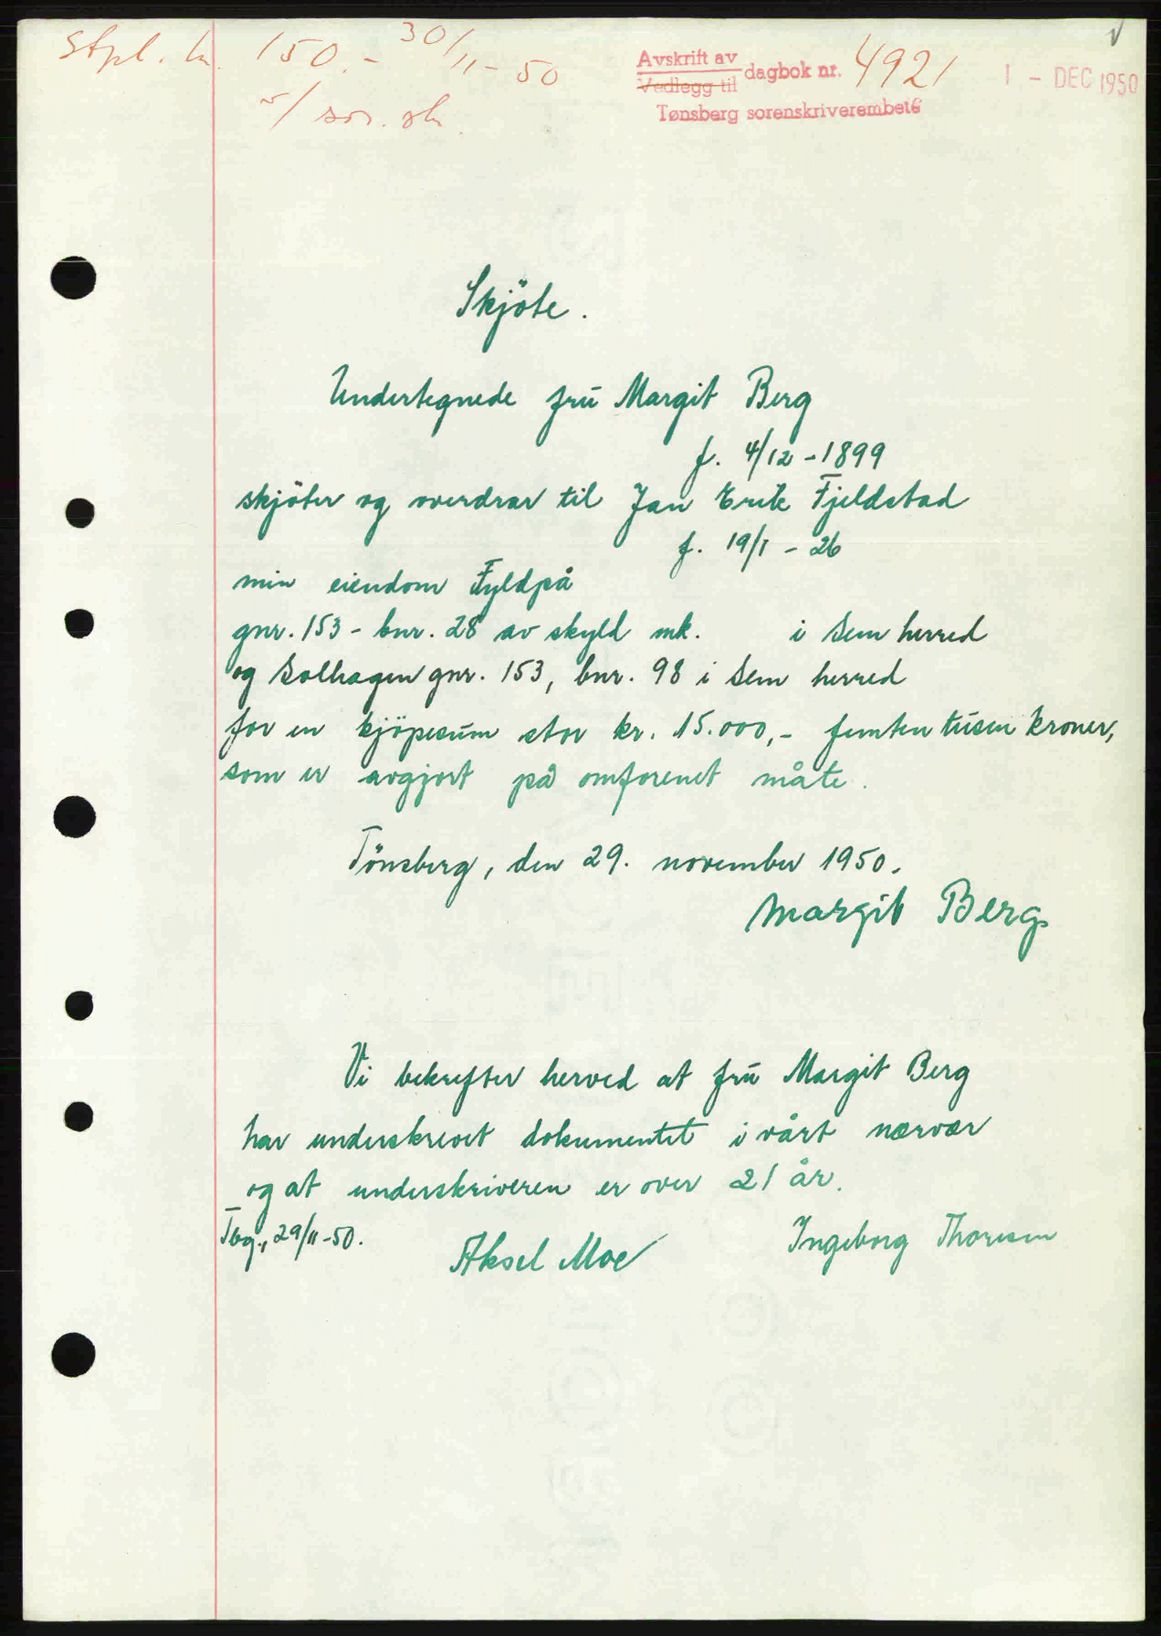 Stpl. kr. 150.- 30/11-50
s/ sor. sk.
Avskrift av
Vedlegg til
dagbok nr. 4921
1 - DEC 1950
Tønsberg sorenskriverembete
Skjöte.
Undertegnede frü Margit Berg
f. 4/12-1899
skjöter og overdrar til Jan Erik Fjeldstad
f. 19/1-26
min eiendom Fyldpå
gnr. 153 - bnr. 28 av skyld mk. i Sem herred
og Solhagen gnr. 153, bnr. 98 i Sem herred
for en kjöpesüm stor kr. 15.000,- femten tüsen kroner,
som er avgjort på omforenet måte.
Tönsberg, den 29. november 1950.
Margit Berg
Vi bekrefter herved at frü Margit Berg
har underskrevet dokumentet i vårt nærvær
og at underskriveren er over 21 år.
Tbg., 29/11-50.
Aksel Moe
Ingeborg Thoresen